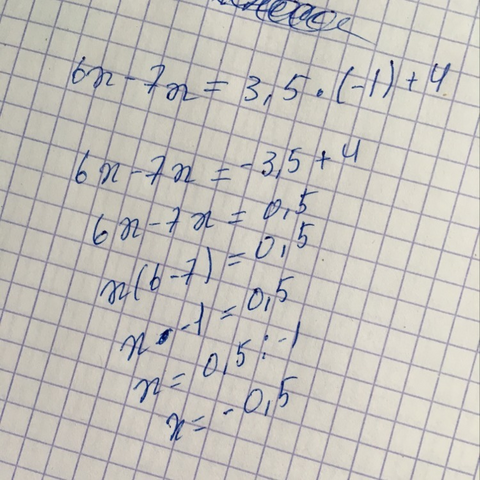 6x - 7x = 3,5 · (-1) + 4
6x - 7x = -3,5 + 4
6x - 7x = 0,5
x(6-7) = 0,5
x · -1 = 0,5
x = 0,5 : -1
x = -0,5